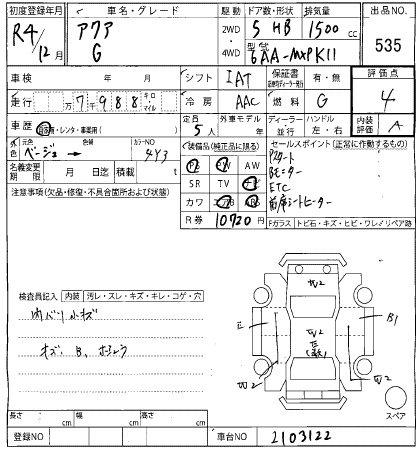 初度登録年月 車名・グレード 駆動 ドア数・形状 排気量 出品NO.
R4/12月 アクア G 2WD 4WD 5 HB 1500cc 535
型式 6AA-MXPK11
車検 年 月 シフト IAT 保証書 有・無 評価点
走行 万7千988 キロ・マイル 冷房 AAC 燃料 G 4
車歴 自家・レンタ・事業用( ) 定員 5人 外車モデル 年 ディーラー 並行 ハンドル 左・右 内装評価 A
外色 元色 ベージュ→ 色替 カラーNO 4Y3
装備品(純正品に限る) セールスポイント(正常に作動するもの)
名義変更期限 月 日迄 積載 t
PS PW AW Pスタート
SR TV ナビ Bモニター
カワ エアB ABS ETC
注意事項(欠品・修復・不具合箇所および状態) 前席シートヒーター
R券 10720円
Fガラス トビ石・キズ・ヒビ・ワレ/リペア跡
検査員記入 内装 汚レ・スレ・キズ・キレ・コゲ・穴
内ハリ小キズ
キズ、B、
W2
E W2 B1
W2 W2
スペア
長さ cm 幅 cm 高さ cm
登録NO 車台NO 2103122